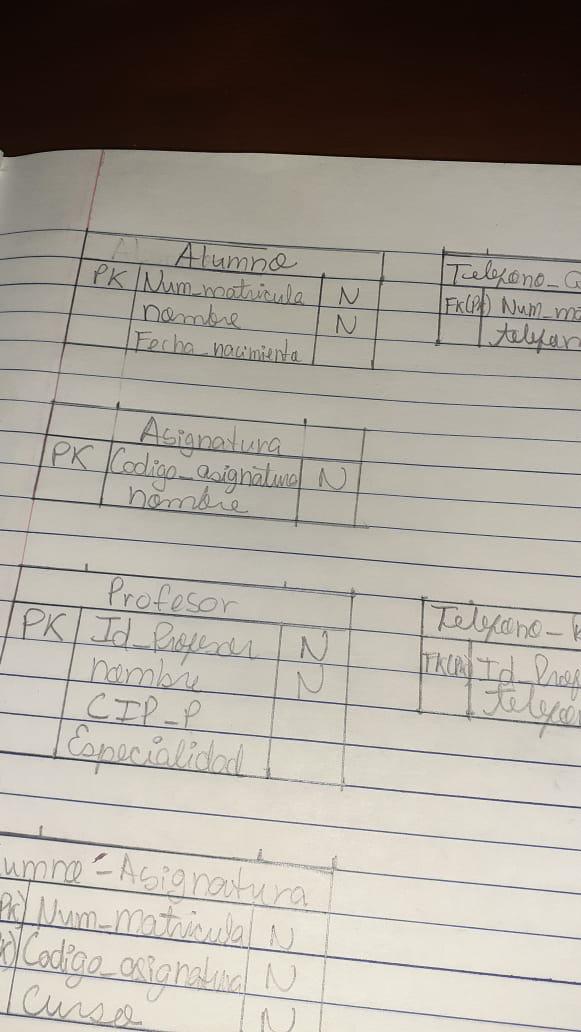 Alumno
PK Num_matricula N
nombre N
Fecha_nacimiento
Telefono_
FK(PK) Num_ma
telefon
Asignatura
PK Codigo_asignatura N
nombre
Profesor
PK Id_Profesor N
nombre N
CIP_P
Especialidad
Telefono_
FK(PK) Id_Prof
telefon
umno-Asignatura
PK) Num_matricula N
K) Codigo_asignatura N
Curso N